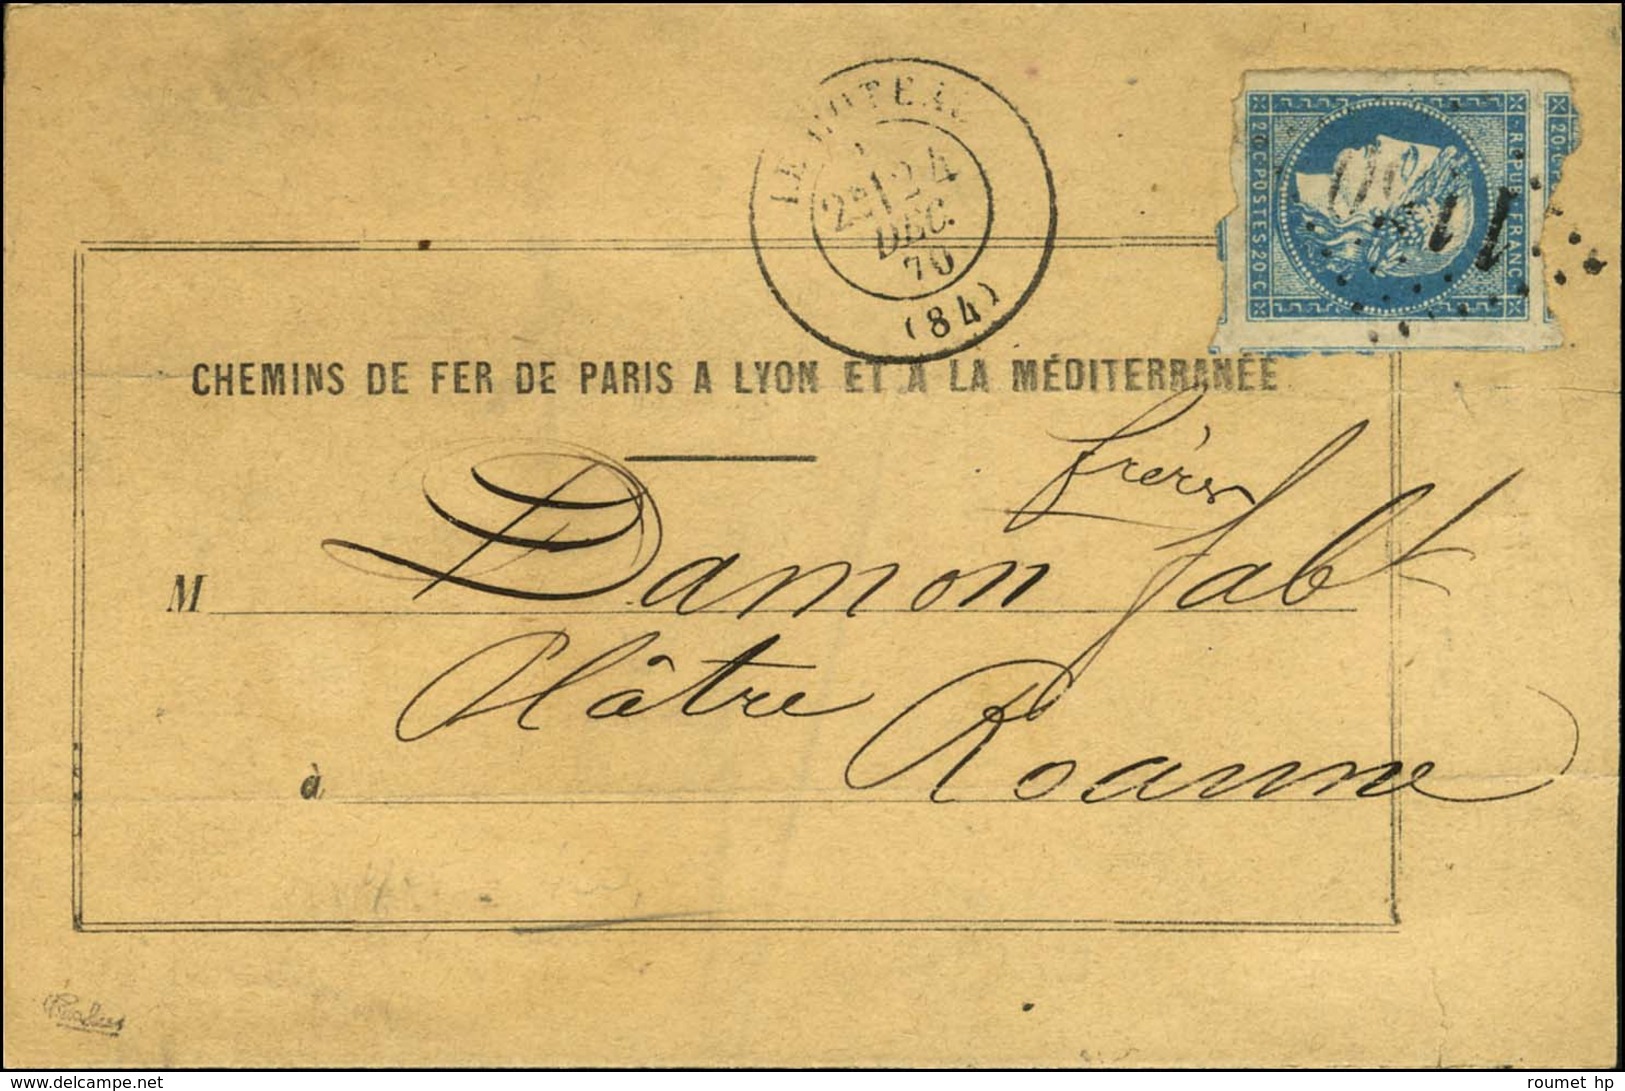 LE COTEAU
2E 24
DEC.
70
(84)
20·C POSTES 20·C
·REPUB·FRANC·
20·C
CHEMINS DE FER DE PARIS A LYON ET A LA MÉDITERRANÉE
frères
M Damon fabt
Plâtre
à Roanne
www.delcampe.net
roumet hp